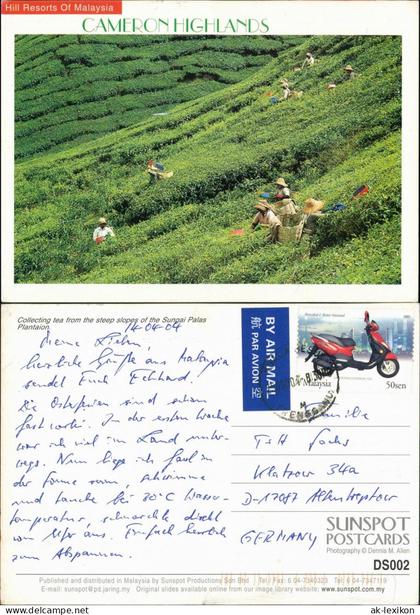 Hill Resorts Of Malaysia
CAMERON HIGHLANDS
Collecting tea from the steep slopes of the Sungai Palas
Plantaion.
14-04-04
Meine Lieben,
herzliche Grüße aus Malaysia
sendet Euch Eckhard.
Die Osterferien sind schon
fast vorbei. In der ersten Woche
war ich viel im Land unter-
wegs. Nun liege ich faul in
der Sonne rum, schwimme
und tauche bei 30°C Wasser-
temperatur, schnorchle direkt
vom Ufer aus. Einfach herrlich
zum Abspannen.
BY AIR MAIL
航 PAR AVION 空
Malaysia
50sen
Familie
Klatzow 34a
D-17087 Altentreptow
GERMANY
SUNSPOT
POSTCARDS
Photography © Dennis M. Allen
DS002
Published and distributed in Malaysia by Sunspot Productions Sdn Bhd Tel / Fax: 6 04-7340323 Tel: 6 04-7347119
E-mail: sunspot@pd.jaring.my Original slides available online from our image library: www.sunspot.com.my
© ak-lexikon